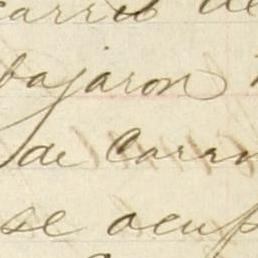 carro de
bajaron
de Carr
se ocup